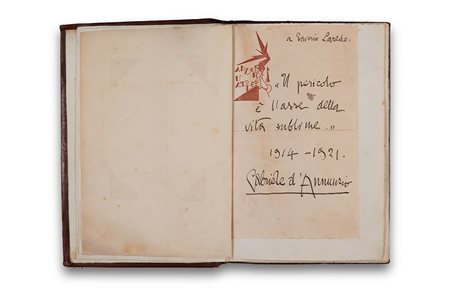 a Saverio Laredo.
"Il pericolo
è l'asse della
vita sublime."
1914 - 1921.
Gabriele d'Annunzio